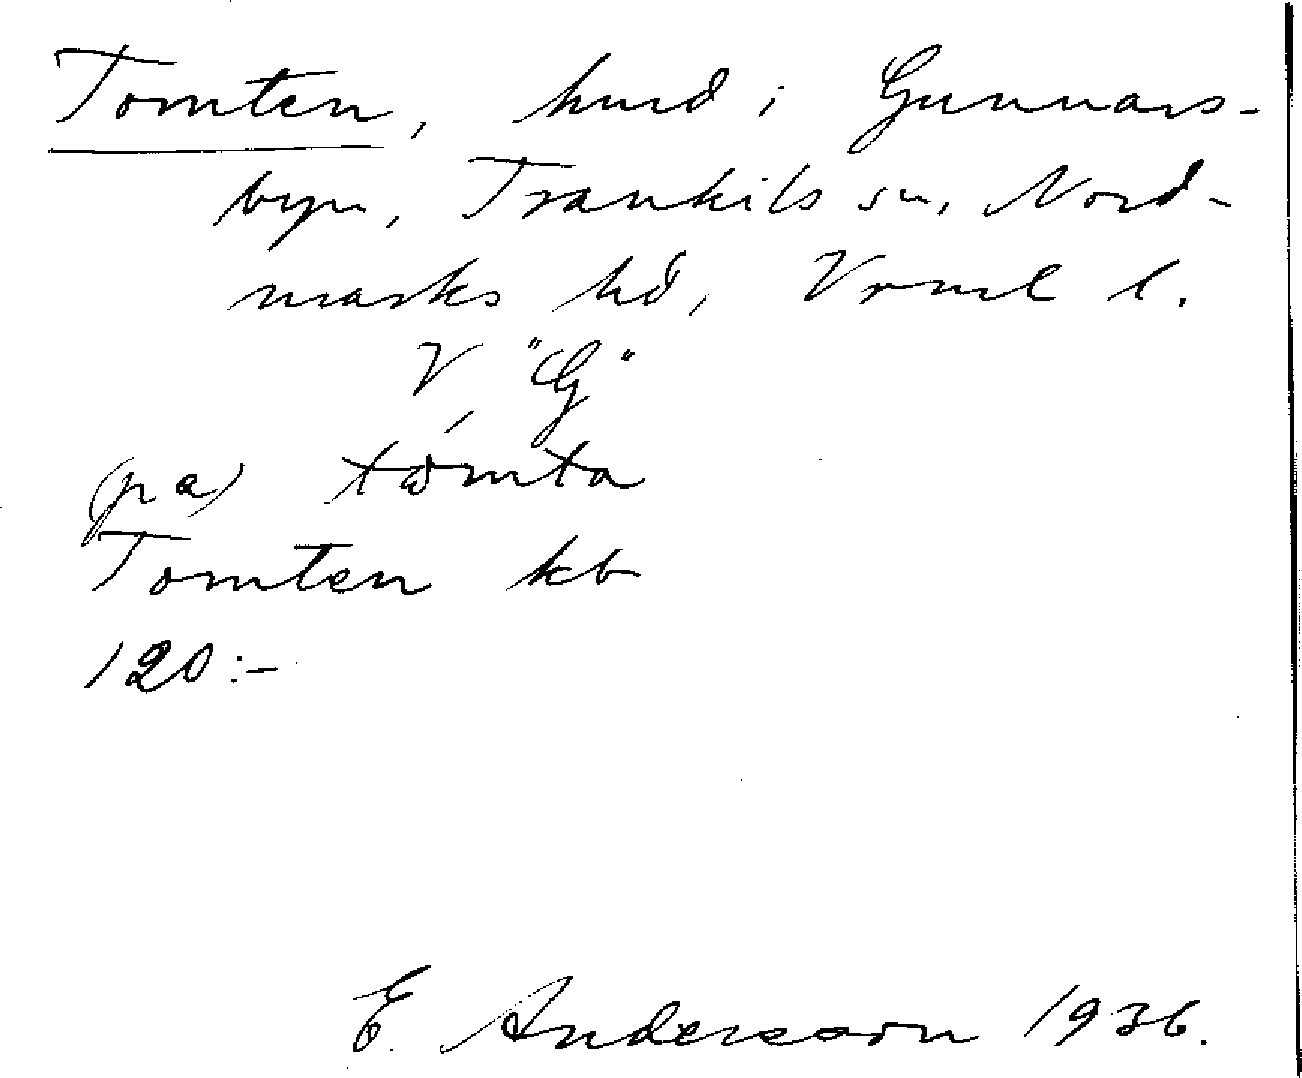 Tomten, hmd i Gunnars-
byn, Trankils sn, Nord-
marks hd, Vrml l.
V "G"
(pa) tømta
Tomten kb
120:-
E. Andersson 1936.